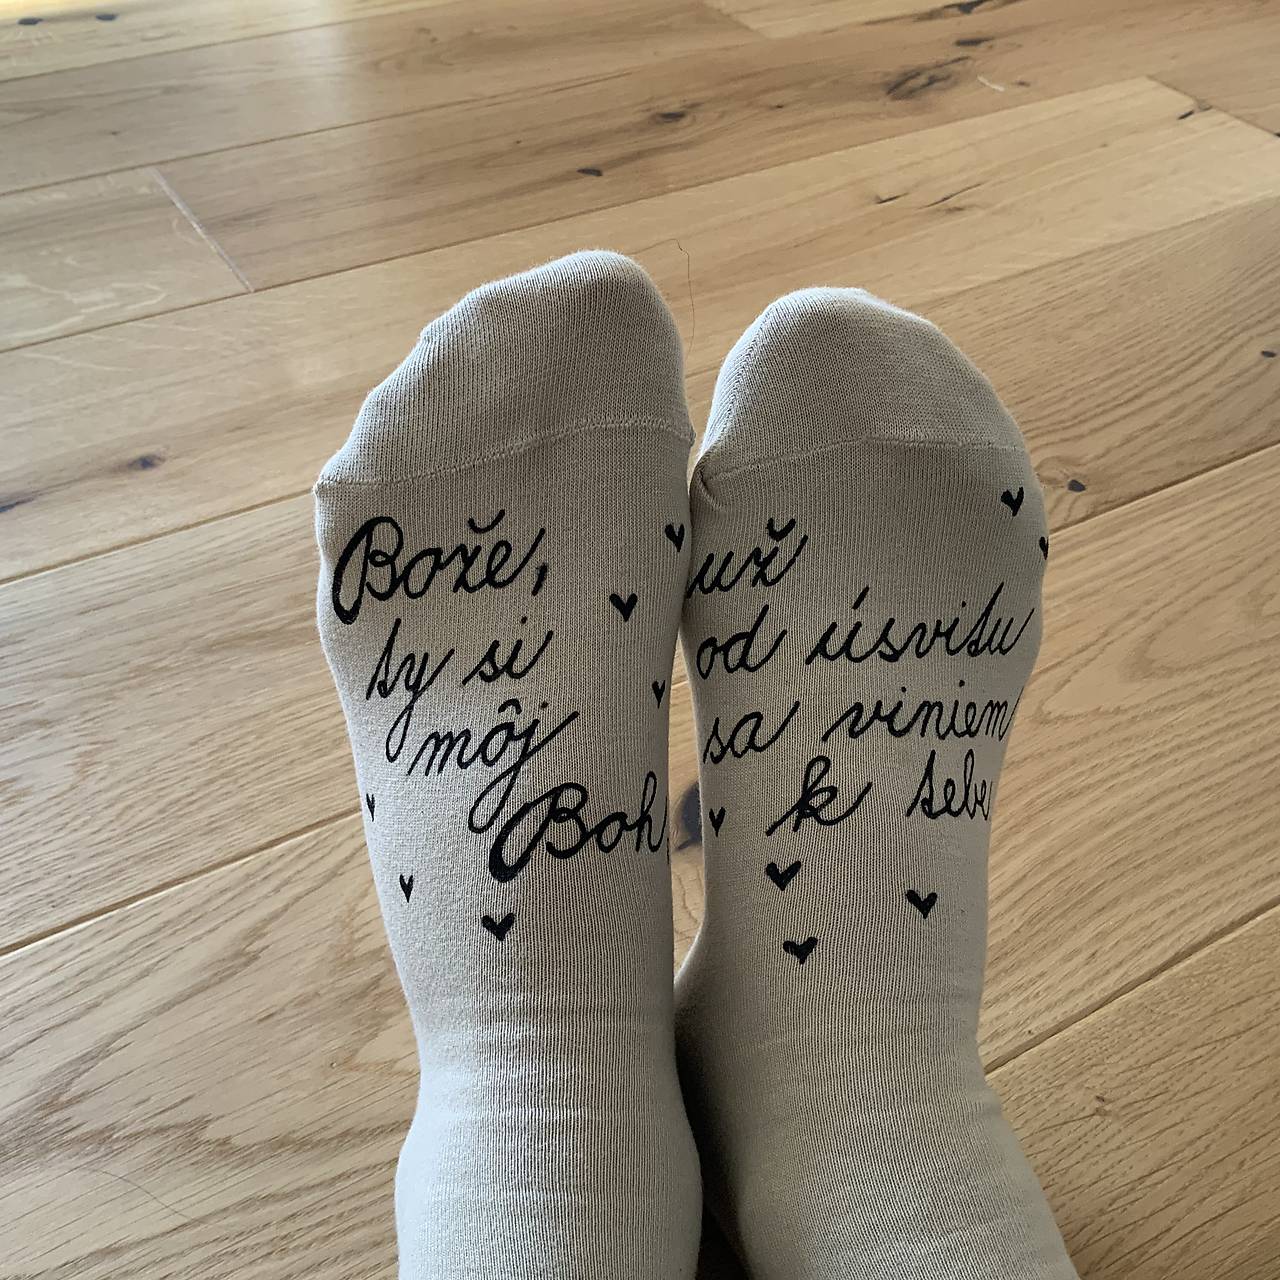 Bože,
ty si
môj
Boh,
už
od úsvitu
sa viniem
k tebe